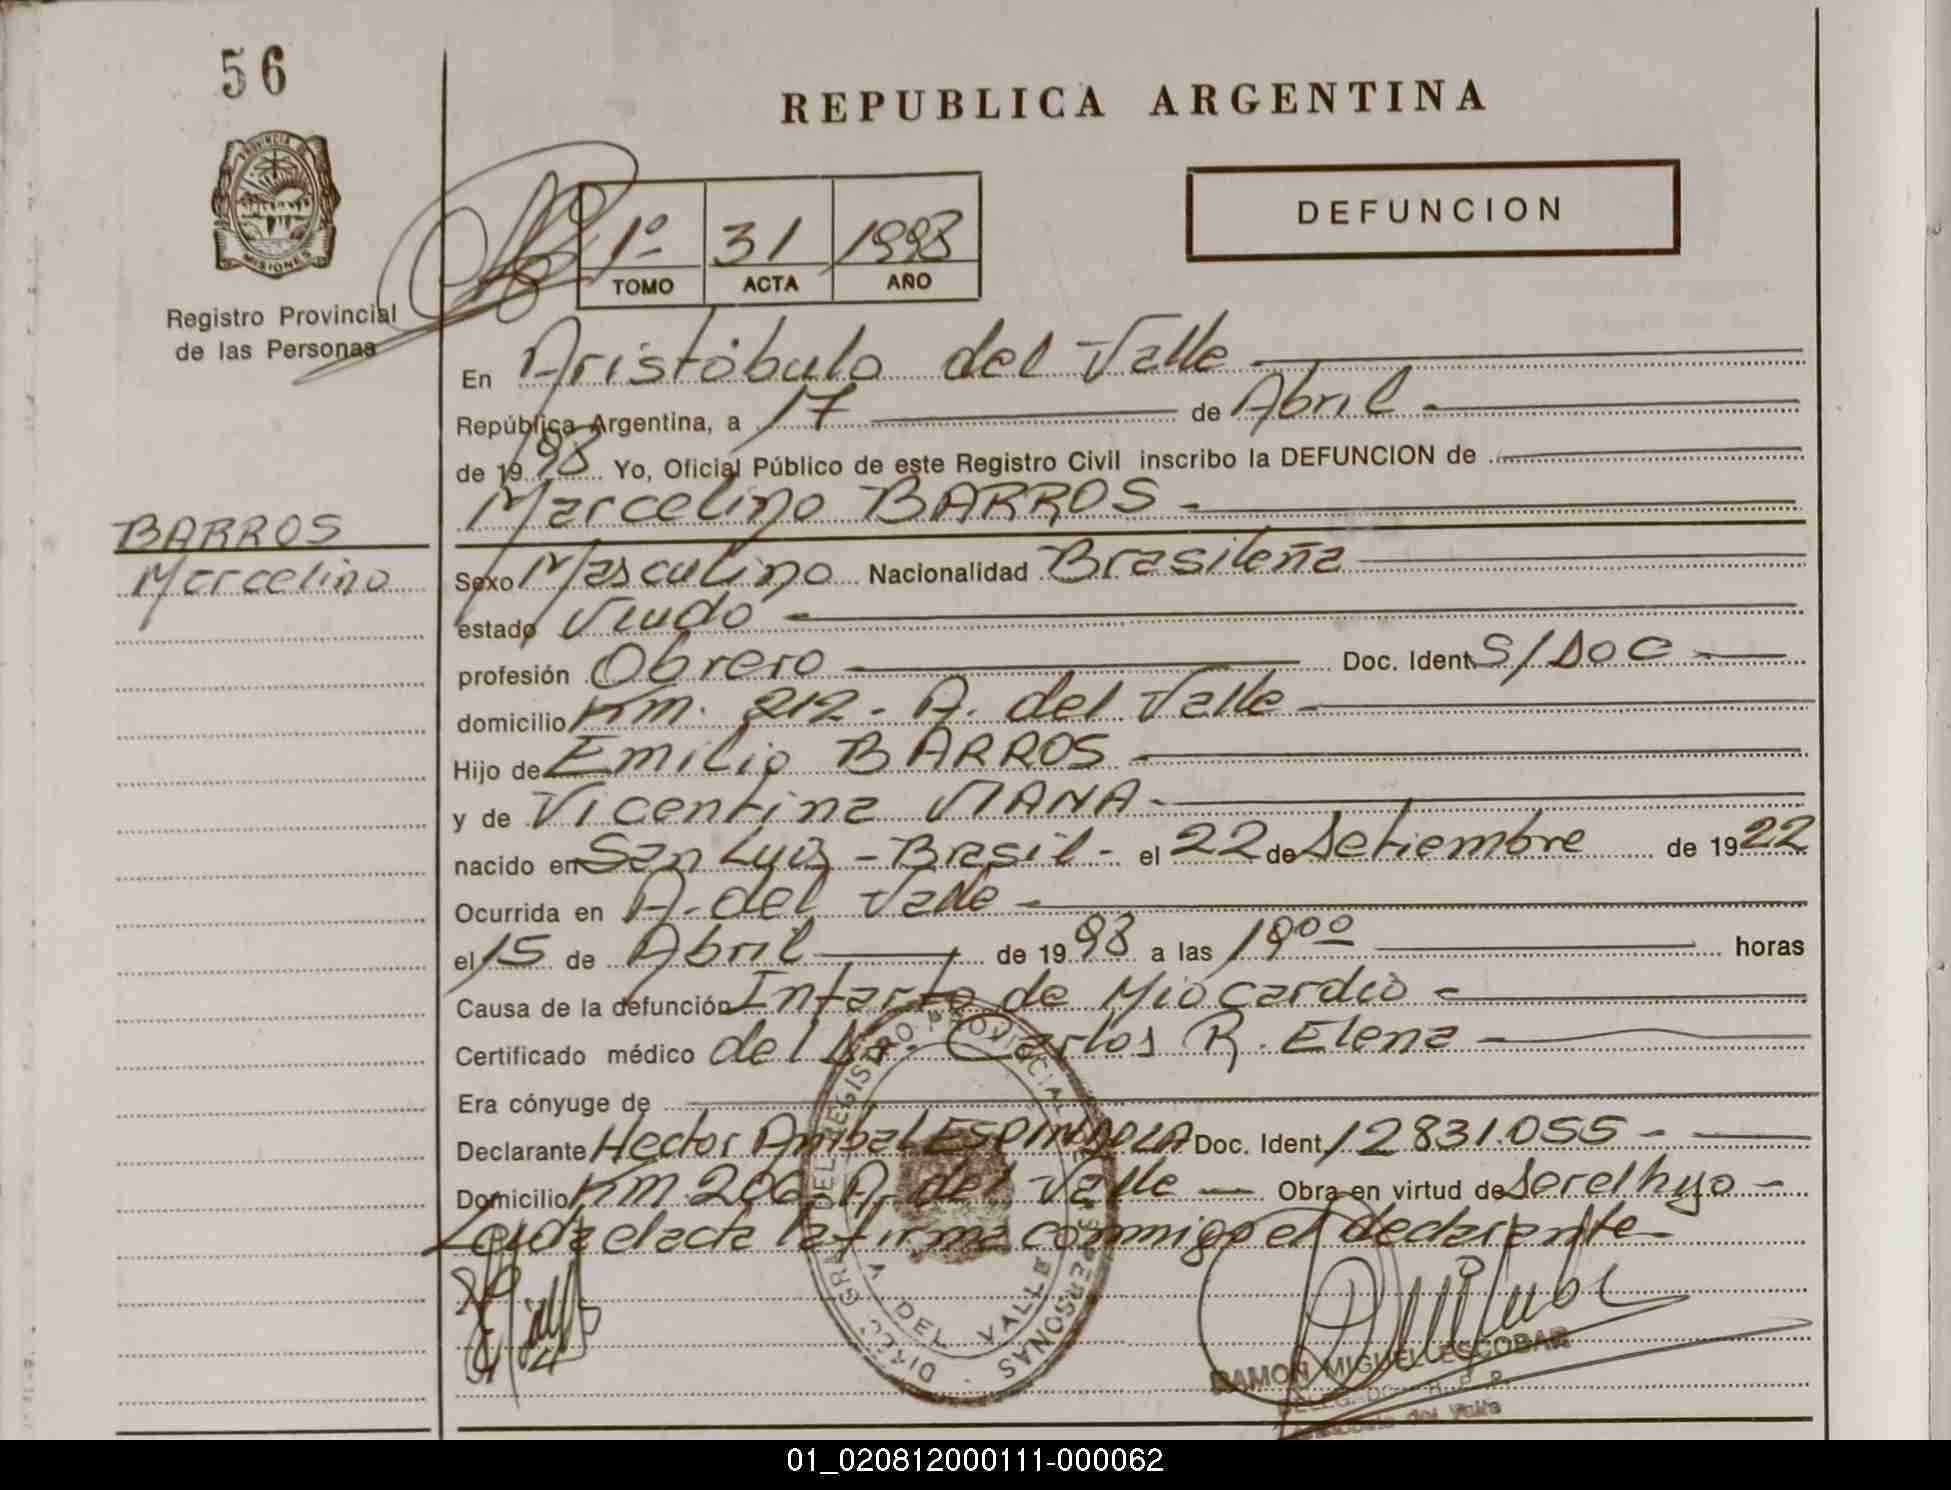 56
REPUBLICA ARGENTINA
PROVINCIA DE
MISIONES
Registro Provincial
de las Personas
1º 31 1998
TOMO ACTA AÑO
DEFUNCION
En Aristóbulo del Valle
República Argentina, a 17 de Abril
de 1998 Yo, Oficial Público de este Registro Civil inscribo la DEFUNCION de
Marcelino BARROS
BARROS
Marcelino
Sexo Masculino Nacionalidad Brasileña
estado Viudo
profesión Obrero Doc. Ident. S/DOC
domicilio Km. 212 - A. del Valle
Hijo de Emilio BARROS
y de Vicentina VIANA
nacido en San Luis - Brasil - el 22 de Setiembre de 1922
Ocurrida en A. del Valle
el 15 de Abril de 1998 a las 19⁰⁰ horas
Causa de la defunción Infarto de Miocardio
Certificado médico del Dr. Carlos R. Elena
Era cónyuge de
Declarante Hector Anibal ESPINDOLA Doc. Ident. 12831.055
Domicilio Km 206 - A. del Valle Obra en virtud de Ser el hijo
Leida el acta la firma conmigo el declarante
DIRECC GRAL DEL REGISTRO PROVINCIAL DE LAS PERSONAS
A DEL VALLE
RAMON MIGUEL ESCOBAR
DELEGADO R. P. P.
Aristobulo del Valle
01_020812000111-000062